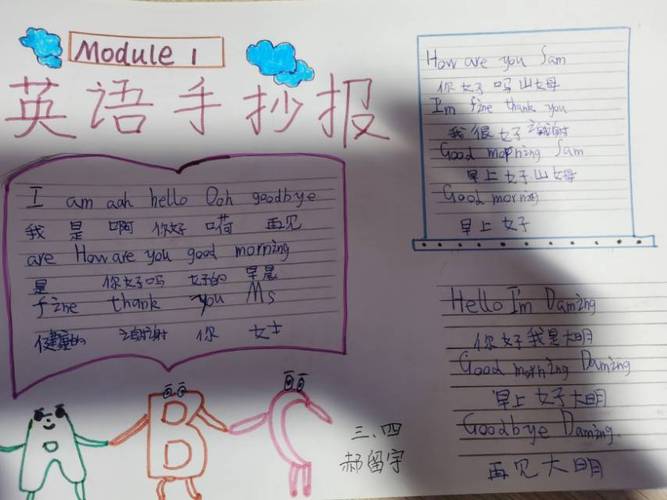 Module 1
英语手抄报
I am aah hello Ooh goodbye
我 是 啊 你好 嗬 再见
are How are you good morning
是 你好吗 好的 早晨
fine thank you Ms
健康的 谢谢 你 女士
How are you Sam
你好吗山姆
I'm fine thank you
我很好谢谢
Good morning Sam
早上好山姆
Good morning
早上好
Hello I'm Daming
你好我是大明
Good morning Daming
早上好大明
Goodbye Daming.
再见大明
A B C
三、四
郝留宇